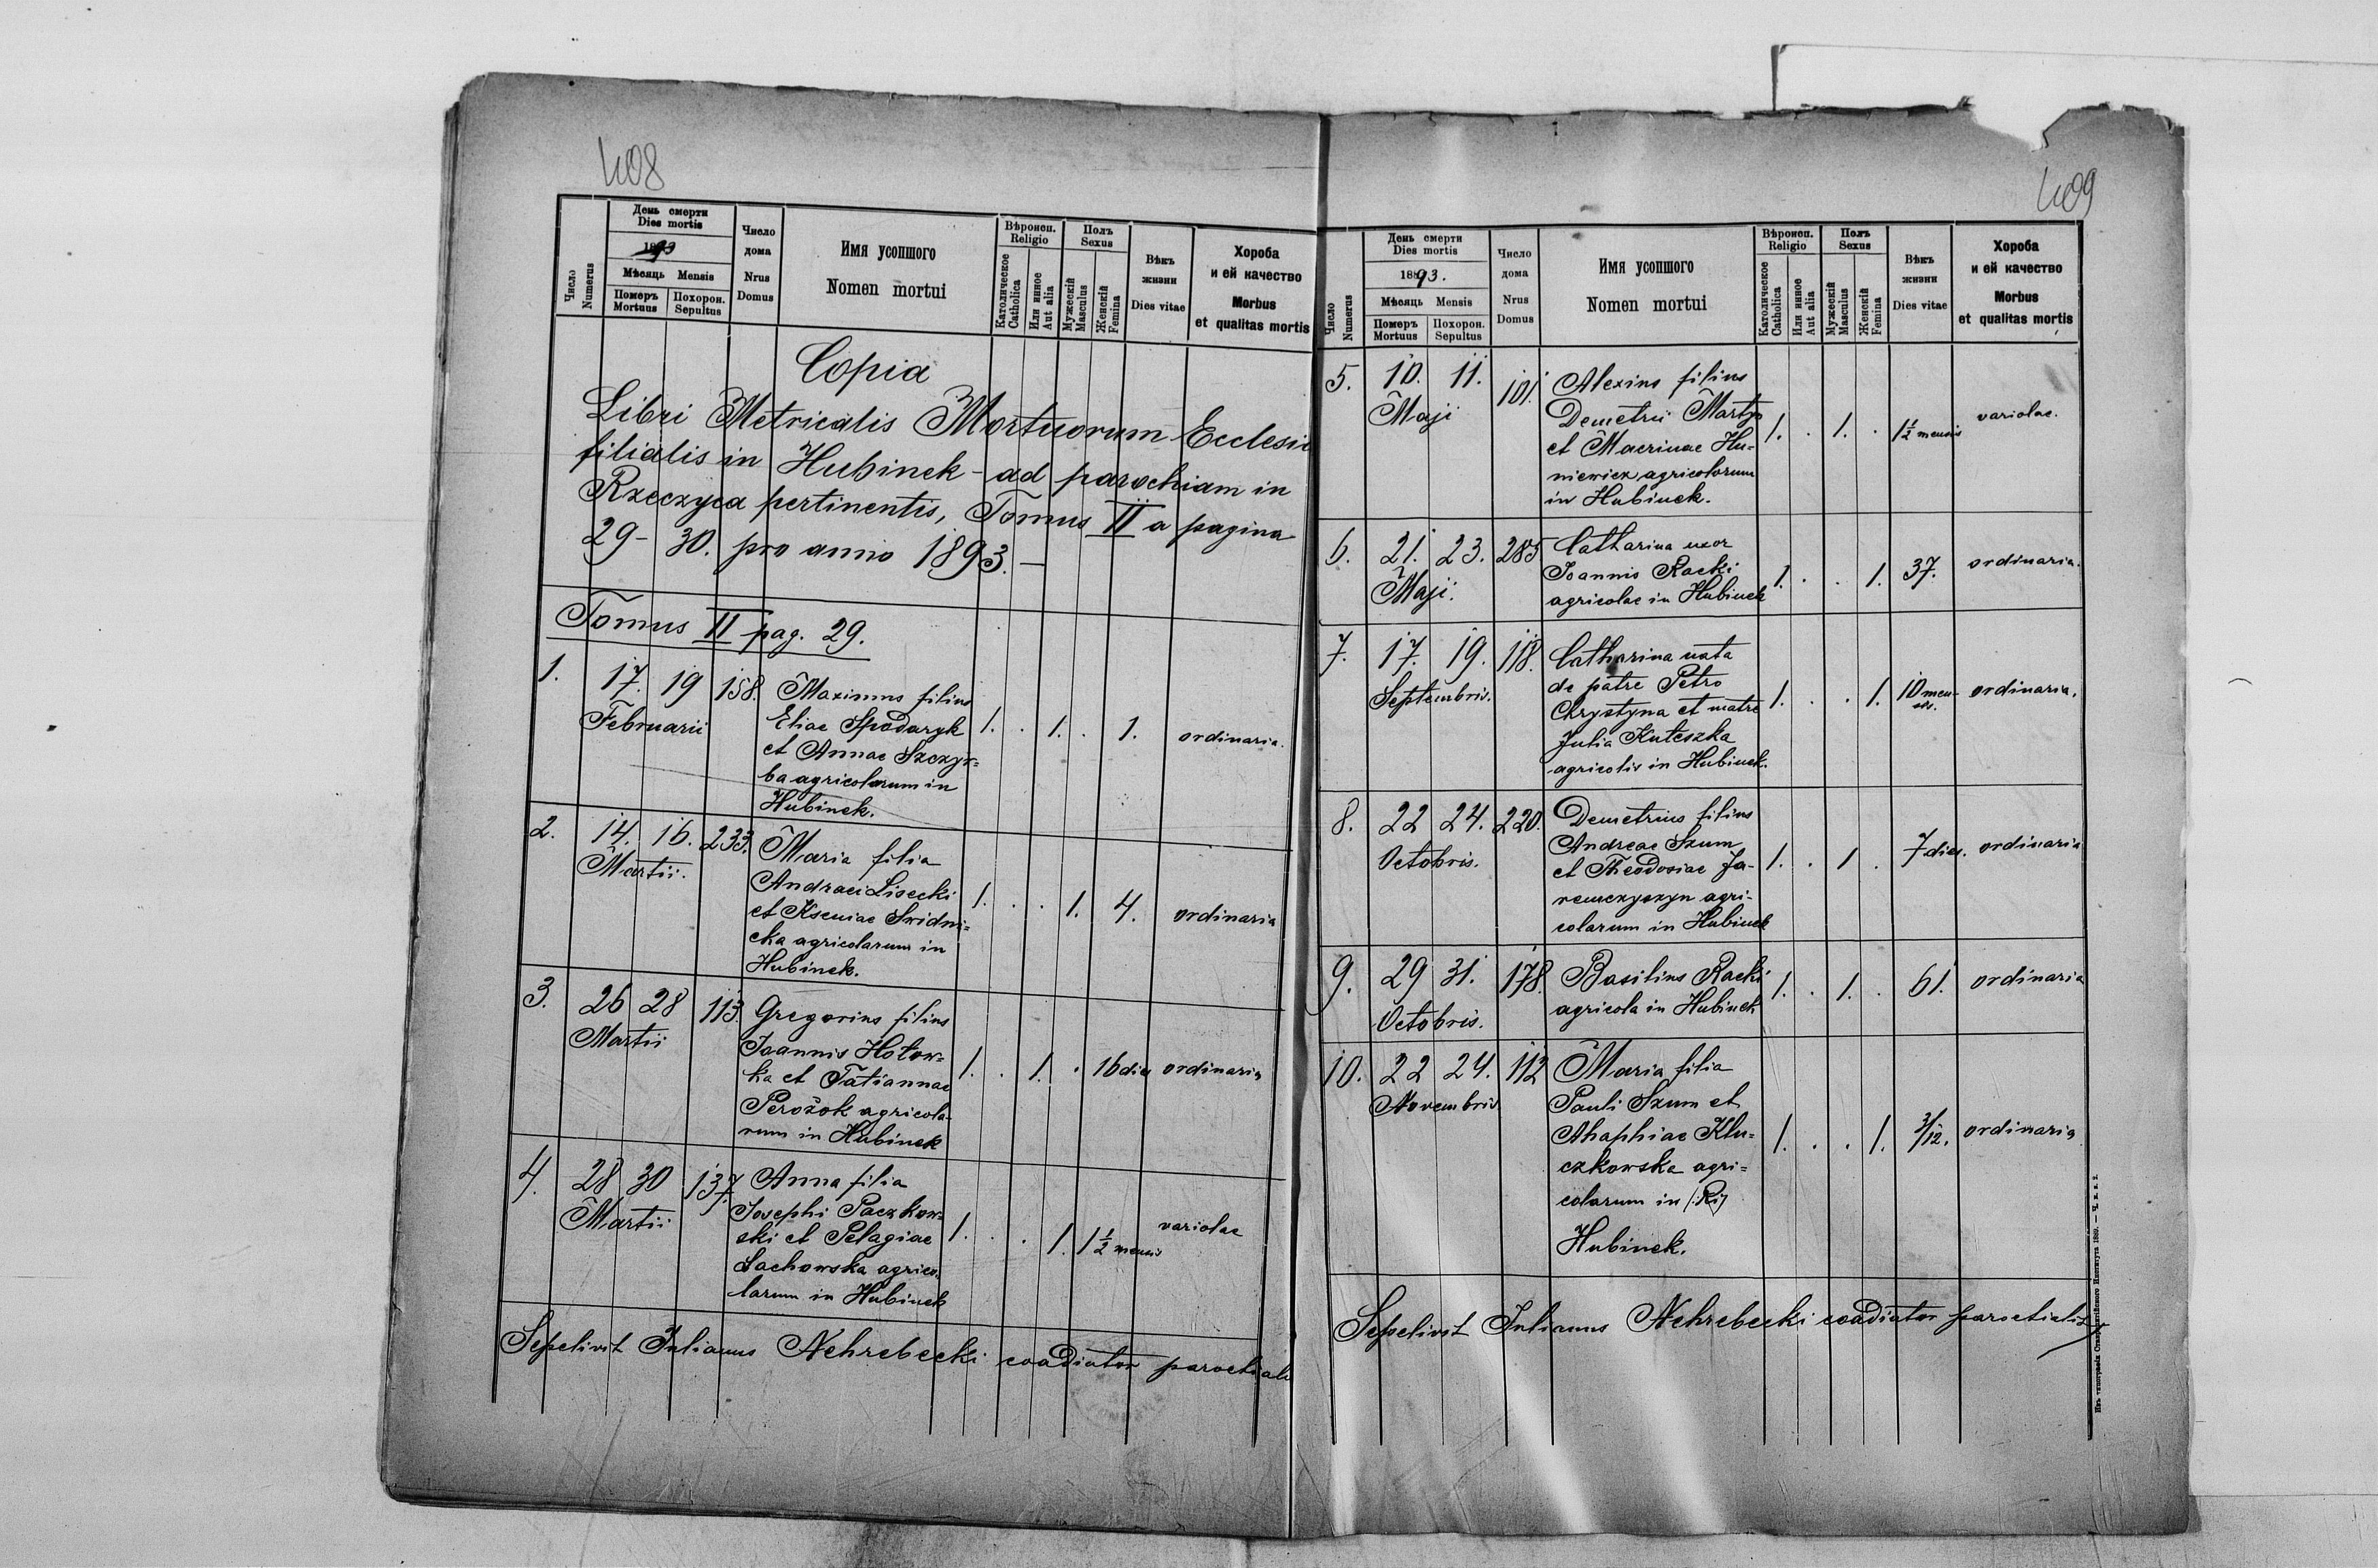 408
Число Numerus
День смерти
Dies mortis
1893
Мѣсяць Mensis
Померъ Mortuus
Похорон. Sepultus
Число дома
Nrus Domus
Имя усопшого
Nomen mortui
Вѣроисп.
Religio
Католическое Catholica
Или инное Aut alia
Полъ
Sexus
Мужескій Masculus
Женскій Femina
Вѣкъ жизни
Dies vitae
Хороба
и ей качество
Morbus
et qualitas mortis
Copia
Libri Metricalis Mortuorum Ecclesie
filialis in Hubinek - ad parochiam in
Rzeczyca pertinentis, Tomus II a pagina
29 - 30. pro anno 1893. —
Tomus II pag. 29.
1. 17. 19 158. Maximus filius
Februarii Eliae Spodaryk 1. . 1. . 1. ordinaria.
et Annae Szczyr=
ba agricolarum in
Hubinek.
2. 14. 16. 233. Maria filia
Martii. Andraei Lisecki 1. . . 1. 4. ordinaria
et Kseniae Swidni=
cka agricolarum in
Hubinek.
3. 26 28 113. Gregorius filius
Martii Joannis Hotow=
ka et Tatiannae 1. . 1. . 16 dies ordinaria
Perožok agricola-
rum in Hubinek
4. 28 30 137. Anna filia
Martii Josephi Paczkow=
ski et Pelagiae 1. . . 1. 1 1/2 mensis variolae
Lachowska agrico
larum in Hubinek
Sepelivit Julianus Nehrebecki coadiutor parochialis
409
Число Numerus
День смерти
Dies mortis
1893.
Мѣсяць Mensis
Померъ Mortuus
Похорон. Sepultus
Число дома
Nrus Domus
Имя усопшого
Nomen mortui
Вѣроисп.
Religio
Католическое Catholica
Или инное Aut alia
Полъ
Sexus
Мужескій Masculus
Женскій Femina
Вѣкъ жизни
Dies vitae
Хороба
и ей качество
Morbus
et qualitas mortis
5. 10. 11. 101. Alexius filius
Maji Demetrii Martyo
et Macrinae Hu= 1. . 1. . 1 1/2 mensis variolae.
niewicz agricolorum
in Hubinek.
6. 21. 23. 285 Catharina uxor
Maji. Joannis Racki 1. . . 1. 37. ordinaria.
agricolae in Hubinek
7. 17. 19. 118. Catharina nata
Septembris. de patre Petro
Chrystyna et matre 1. . . 1. 10 men- ordinaria.
Julia Kuteszka
agricolis in Hubinek.
8. 22 24. 220. Demetrius filius
Octobris. Andreae Szum
et Theodosiae Ja- 1. . 1 . 7 dies. ordinaria
remczyszyn agri-
colarum in Hubinek
9. 29 31. 178. Basilius Racki 1. . 1. . 61. ordinaria
Octobris. agricola in Hubinek
10. 22 24. 112 Maria filia
Novembris Pauli Szum et
Ahaphiae Klu= 1. . . 1. 3/12. ordinaria
czkowska agri=
colarum in
Hubinek.
Sepelivit Julianus Nehrebecki coadiutor parochialis
Изъ типографіи Ставропигійского Института 1889. — Ч. п. в. 2.